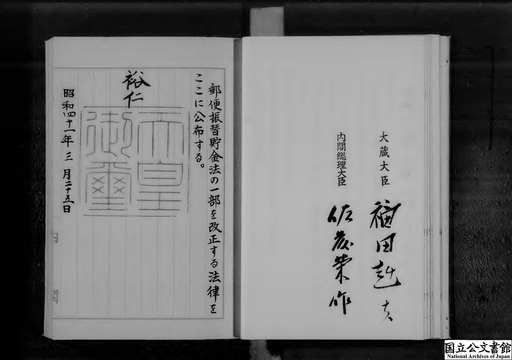 大蔵大臣 福田赳夫
内閣総理大臣 佐藤栄作
郵便振替貯金法の一部を改正する法律を
ここに公布する。
裕仁
天皇
御璽
昭和四十一年三月二十五日
国立公文書館
National Archives of Japan